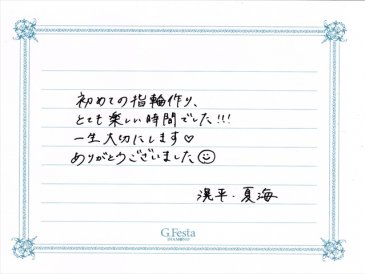 初めての指輪作り、
とても楽しい時間でした!!!
一生大切にします♡
ありがとうございました☺
滉平・夏海
G.Festa
DIAMOND